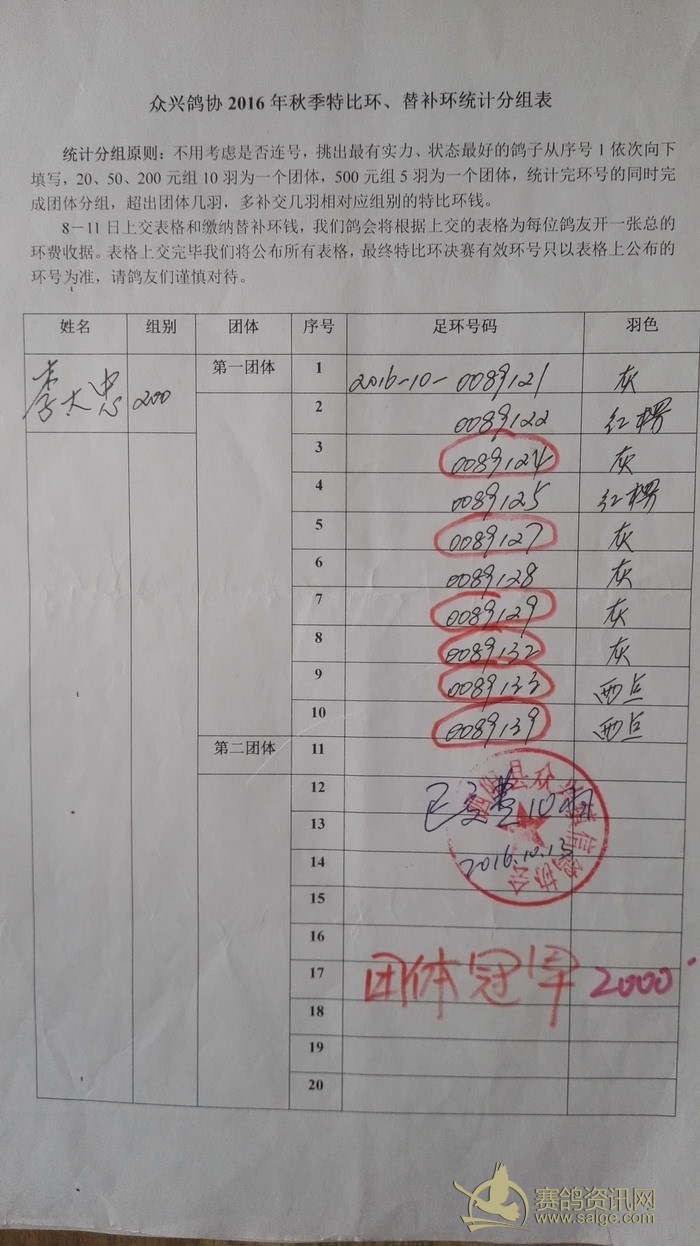 众兴鸽协 2016 年秋季特比环、替补环统计分组表
统计分组原则：不用考虑是否连号，挑出最有实力、状态最好的鸽子从序号 1 依次向下
填写，20、50、200 元组 10 羽为一个团体，500 元组 5 羽为一个团体，统计完环号的同时完
成团体分组，超出团体几羽，多补交几羽相对应组别的特比环钱。
8－11 日上交表格和缴纳替补环钱，我们鸽会将根据上交的表格为每位鸽友开一张总的
环费收据。表格上交完毕我们将公布所有表格，最终特比环决赛有效环号只以表格上公布的
环号为准，请鸽友们谨慎对待。
姓名 组别 团体 序号 足环号码 羽色
李大忠 200 第一团体 1 2016-10-0089121 灰
2 0089122 红楞
3 0089124 灰
4 0089125 红楞
5 0089127 灰
6 0089128 灰
7 0089129 灰
8 0089132 灰
9 0089133 西点
10 0089139 西点
第二团体 11
12 已交费10羽
13
14 2016.10.13
15
16
17 团体冠军 2000
18
19
20
泗阳县众兴镇信鸽协会
赛鸽资讯网
www.saige.com